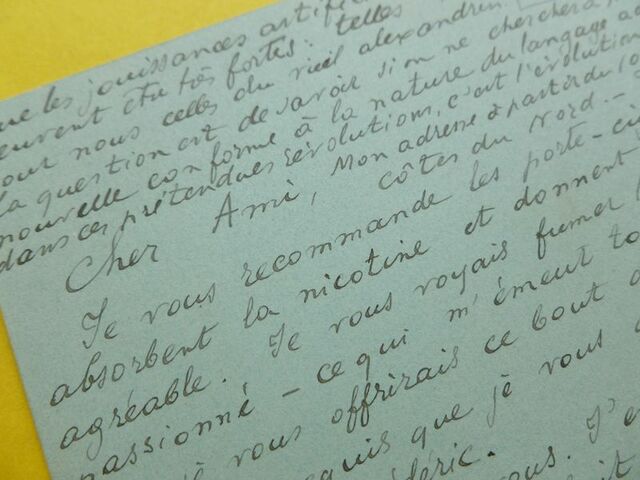 que les jouissances artifi
peuvent être très fortes : telles
pour nous celles du vieil alexandrin
la question est de savoir si on ne cherchera
nouvelle conforme à la nature du langage
dans ces prétendues révolutions, c'est l'évolution
Cher Ami, Mon adresse à partir du 10
côtes du Nord. -
Je vous recommande les porte-ci
absorbent la nicotine et donnent
agréable. Je vous voyais fumer
passionné - ce qui m'émeut to
je vous offrirais ce bout
quis que je vous
déric.
vous. J'